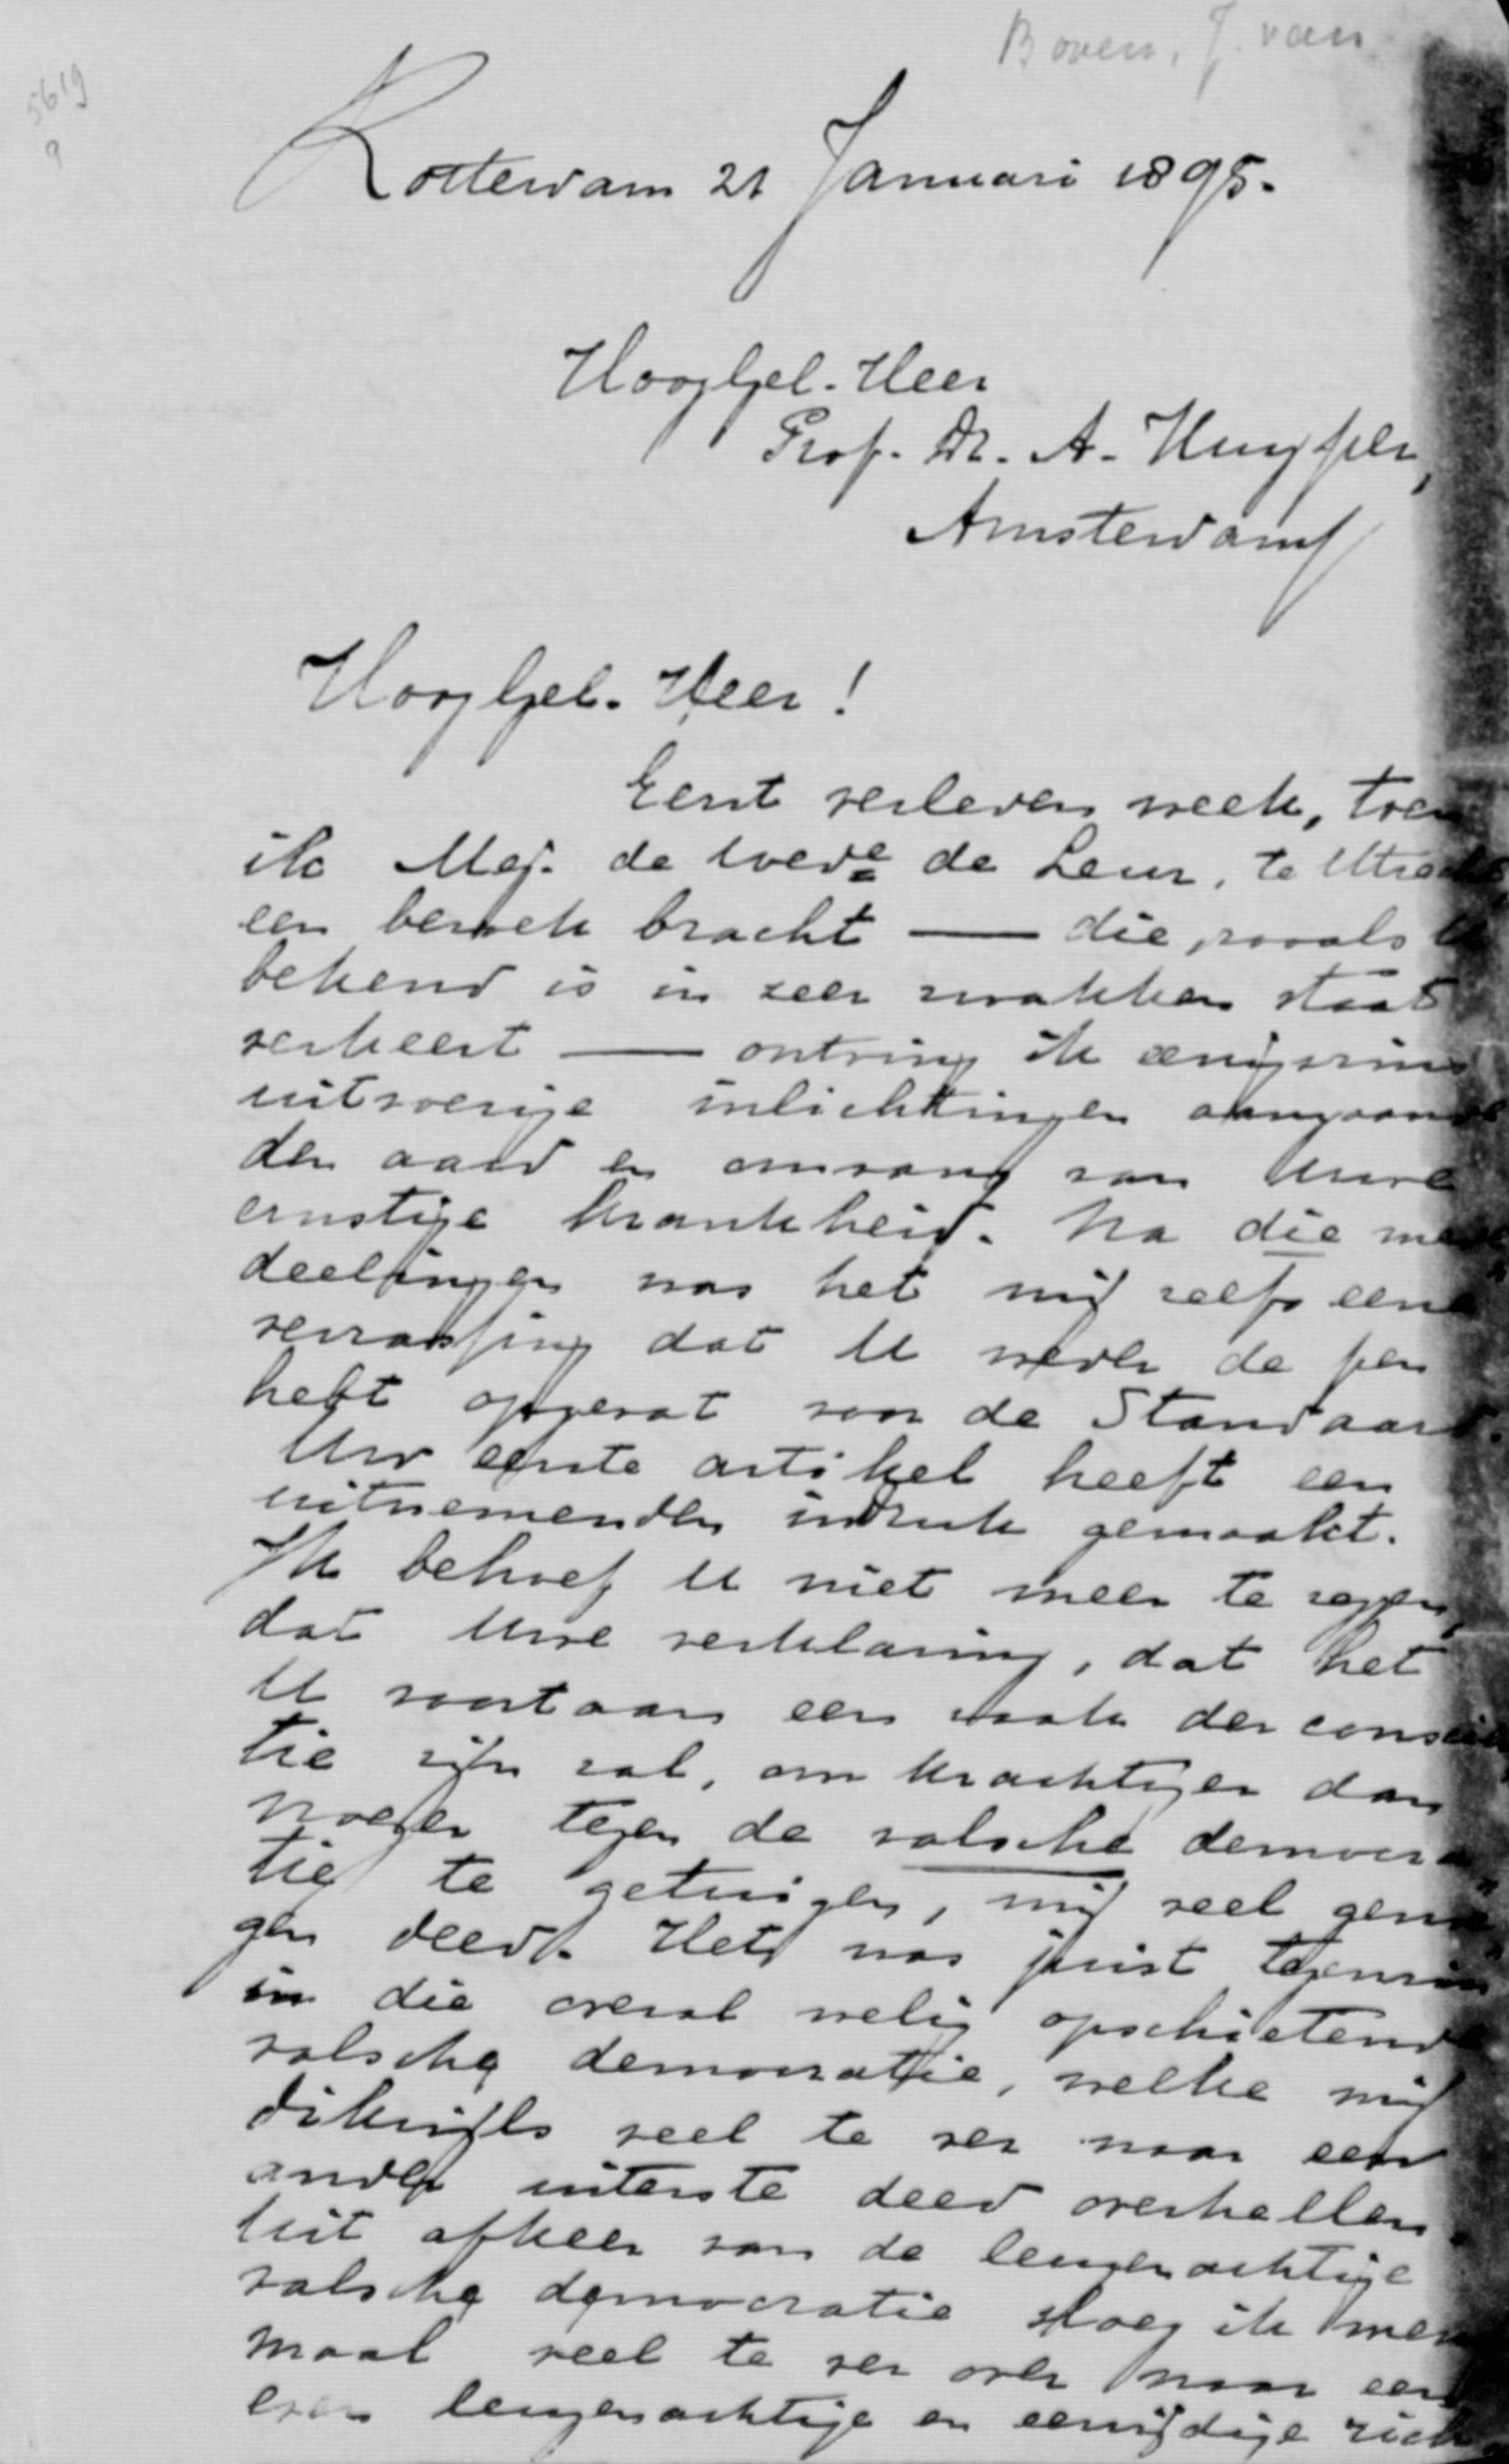 Boven, J. van
5619
9
Rotterdam 21 Januari 1895.
Hooggel. Heer
Prof. Dr. A. Kuyper,
Amsterdam
Hooggel. Heer!
Eerst verleden week, toen
ik Mej. de wede de Leur, te Utrecht
een bezoek bracht — die, zooals U
bekend is in zeer zwakken staat
verkeert — ontving ik enigszins
uitvoerige inlichtingen aangaande
den aard en omvang van Uwe
ernstige krankheid. Na die mede
deelingen was het mij zelfs eene
verrassing dat U weder de pen
hebt opgevat voor de Standaard.
Uw eerste artikel heeft een
uitnemenden indruk gemaakt.
Ik behoef U niet meer te zeggen,
dat Uwe verklaring, dat het
U voortaan een zaak der conscien
tie zijn zal, om krachtiger dan
vroeger tegen de valsche democra
tie te getuigen, mij veel genoe
gen deed. Het was juist tegenzin
in die overal welig opschietende
valsche democratie, welke mij
dikwijls veel te ver naar een
ander uiterste deed overhellen.
Uit afkeer van de leugenachtige
valsche democratie sloeg ik menig
maal veel te ver over naar een
even leugenachtige en eenzijdige rich